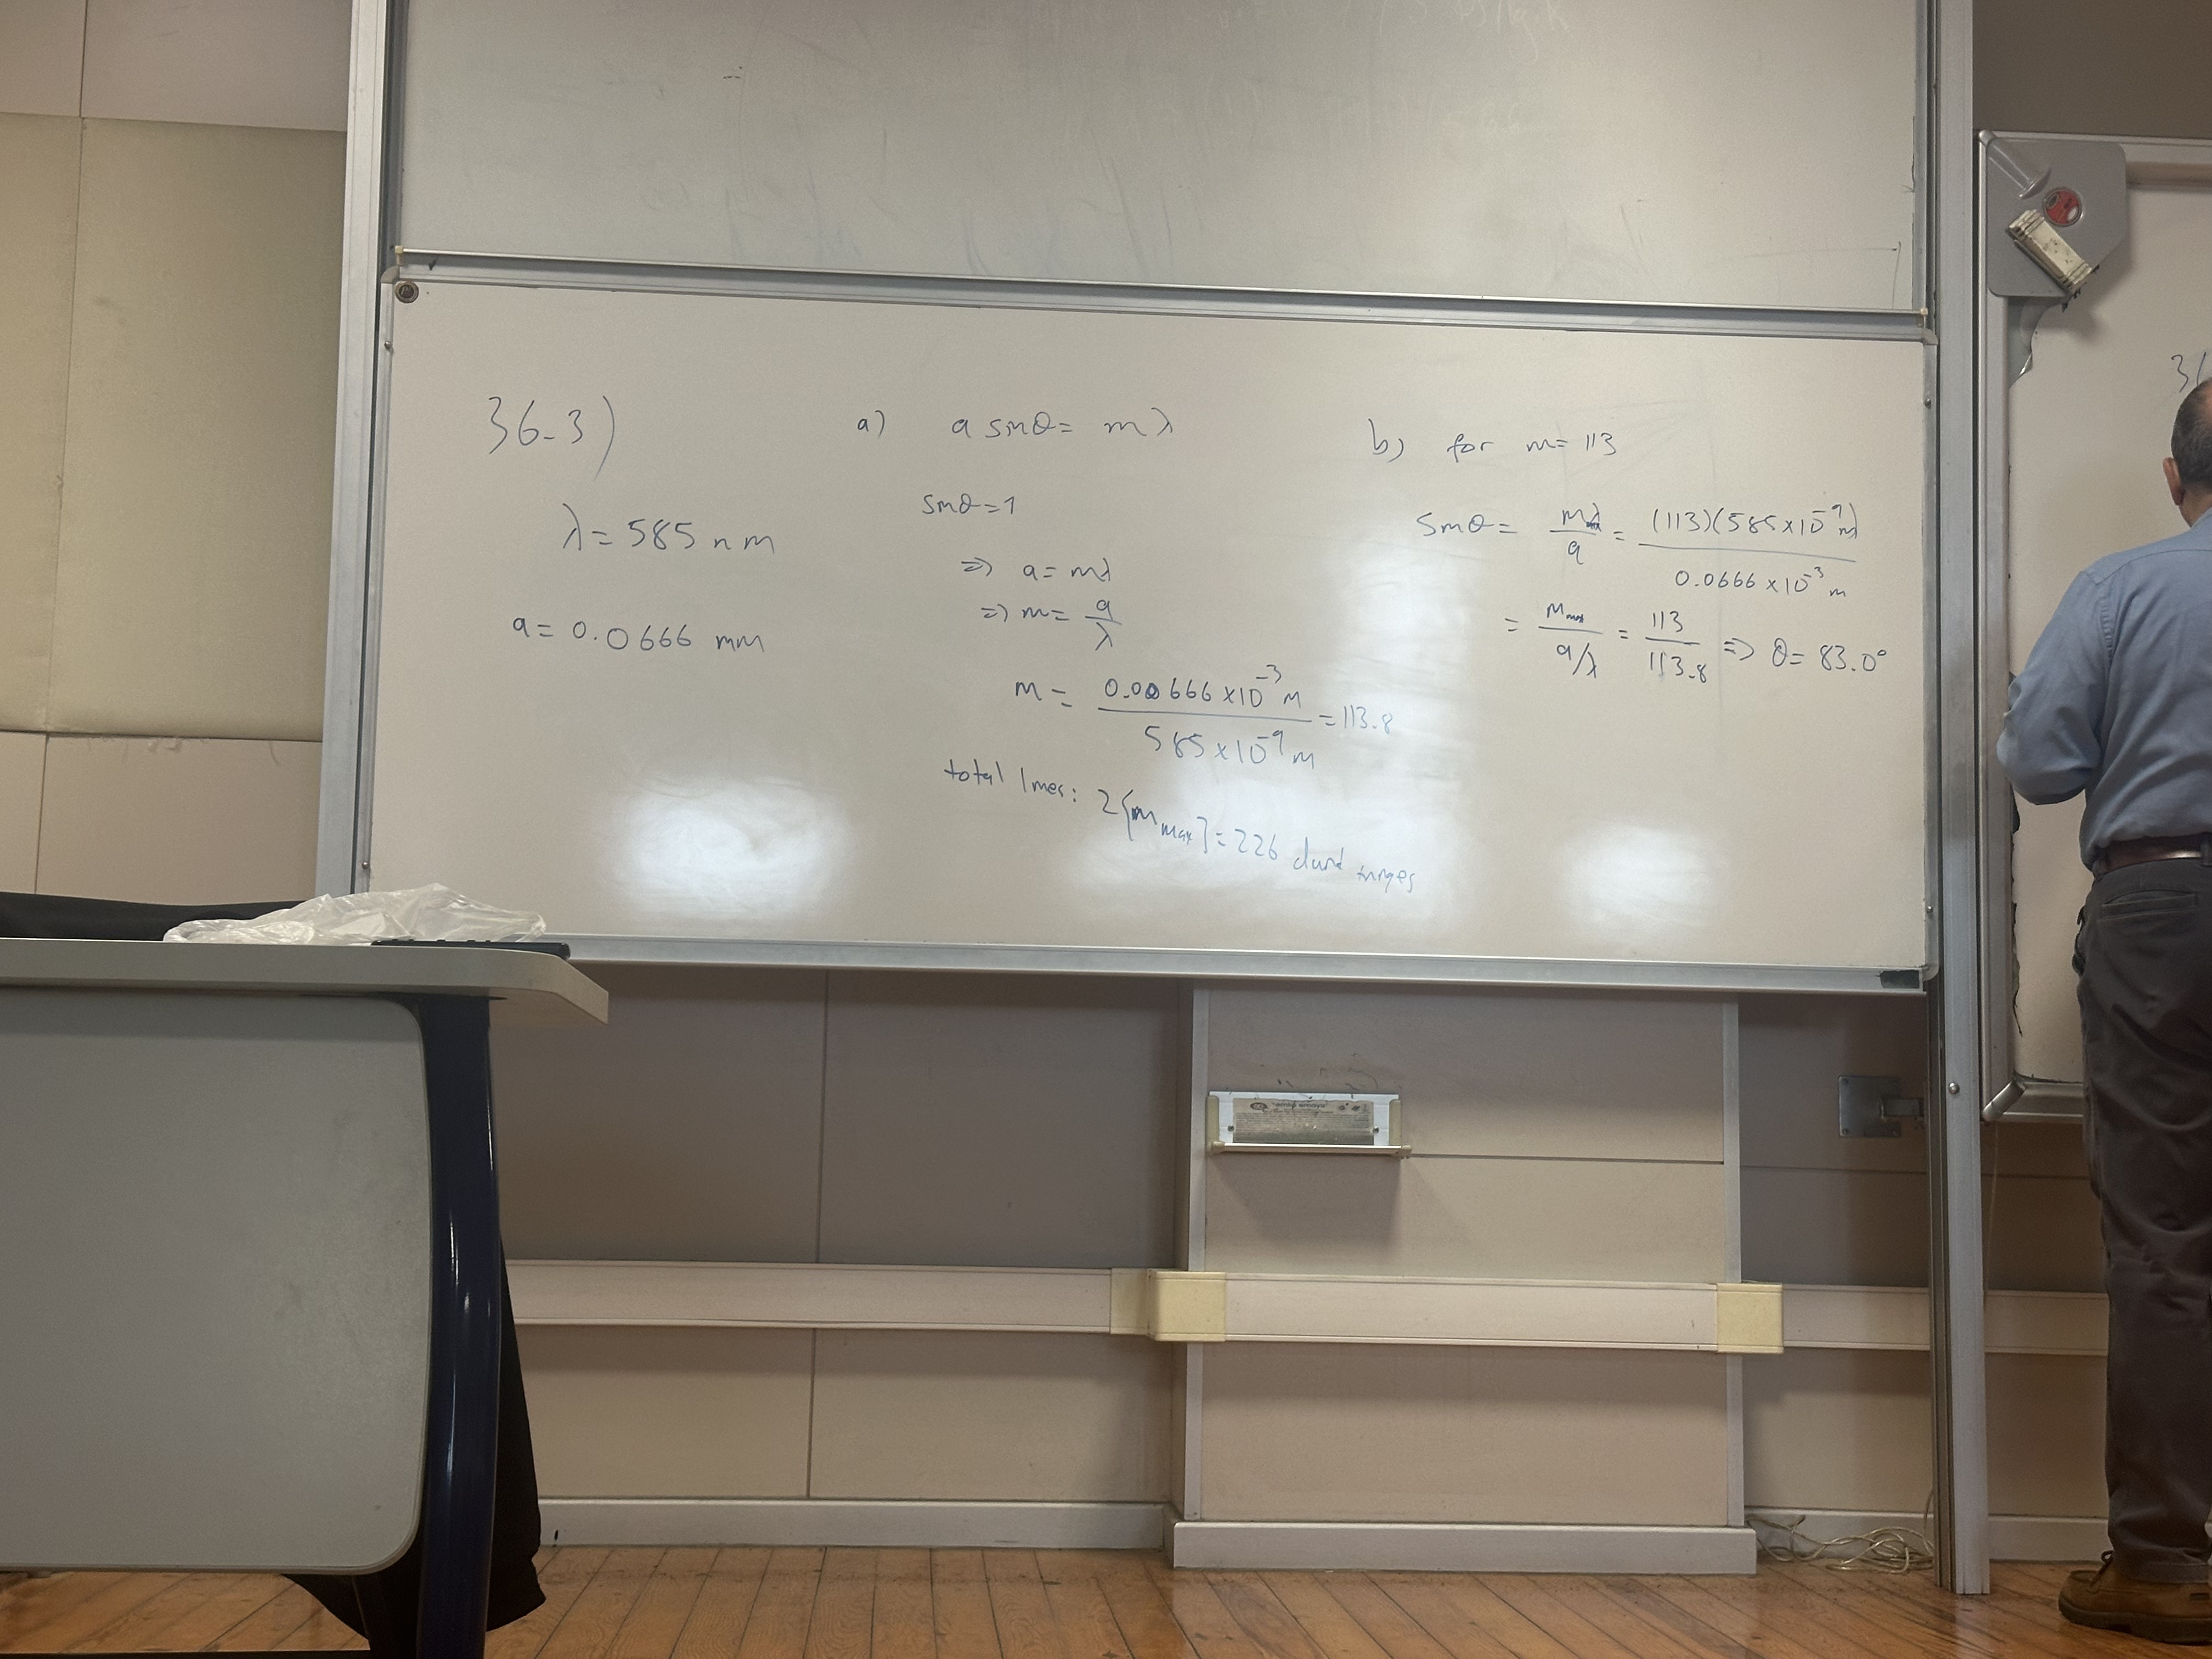 36-3)
λ = 585 nm
a = 0.0666 mm
a) a sinθ = mλ
sinθ = 1
⇒ a = mλ
⇒ m = a/λ
m = 0.00666 x10^-3 m / 585 x 10^-9 m = 113.8
total lines: 2{m_max} = 226 dark fringes
b) for m = 113
sinθ = mλ/a = (113)(585x10^-9 m) / 0.0666 x10^-3 m
= m_max / a/λ = 113/113.8 ⇒ θ = 83.0°